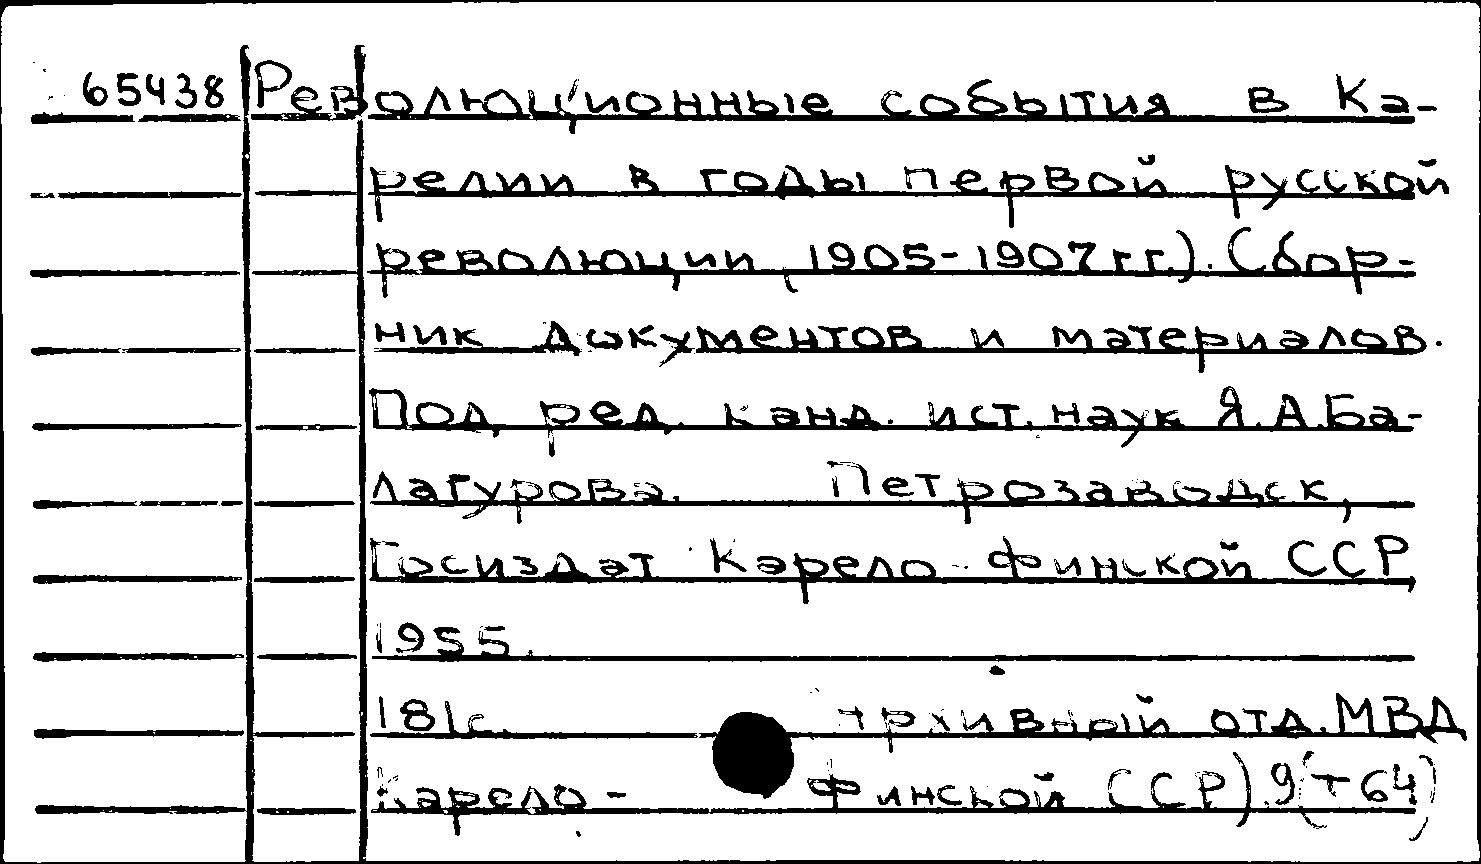 65438 Революционные события в Ка-
релии в годы первой русской
революции (1905-1907 гг.). Сбор-
ник документов и материалов.
Под ред. канд. ист. наук Я.А.Ба-
лагурова. Петрозаводск,
Госиздат Карело-Финской ССР,
1955.
181с. Архивный отд. МВД
Карело- Финской ССР). 9(Т64)